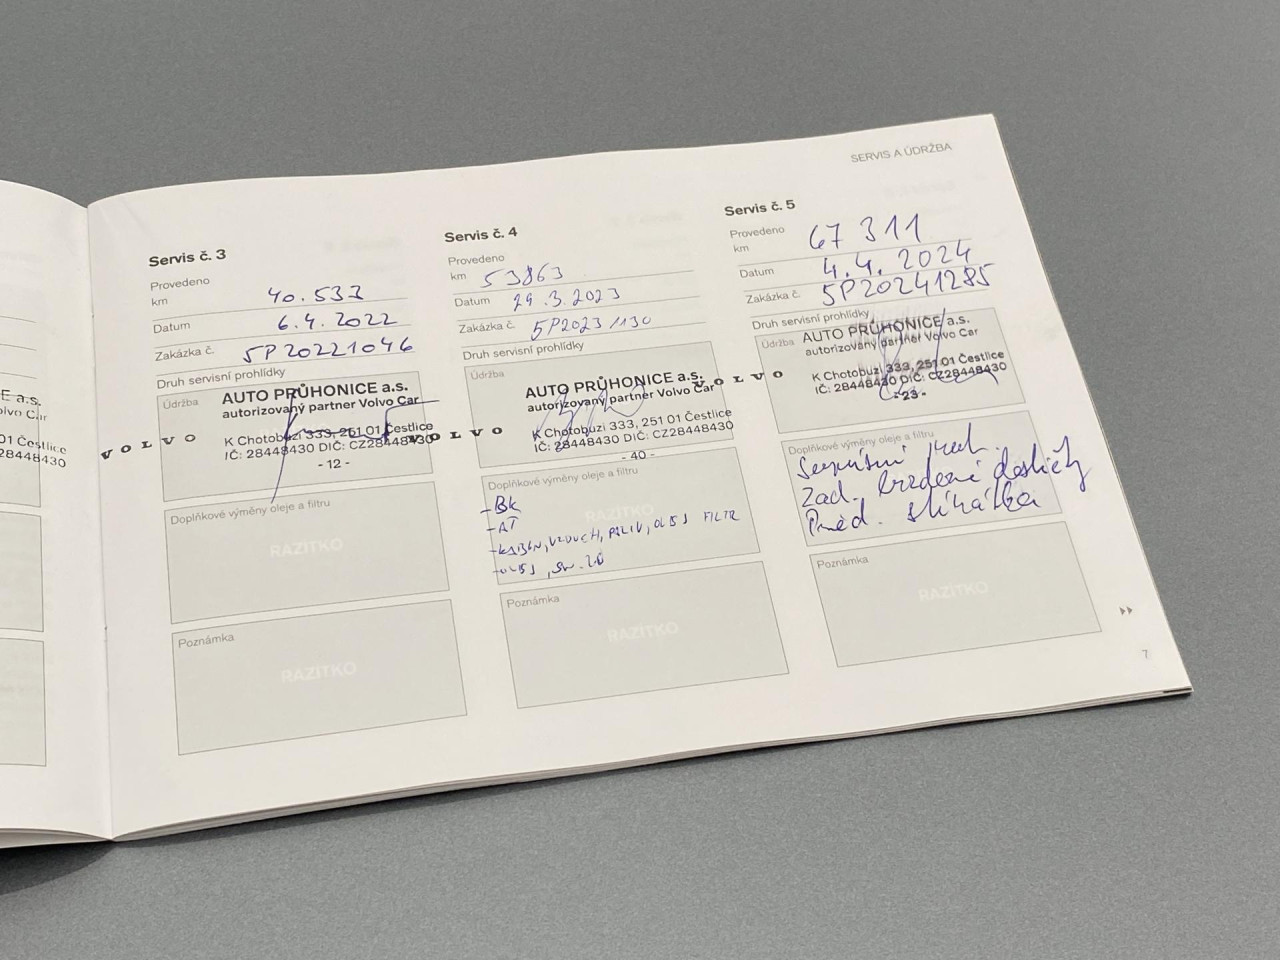 SERVIS A ÚDRŽBA
Servis č. 3
Provedeno
km 40.533
Datum 6.4.2022
Zakázka č. SP20221046
Druh servisní prohlídky
Údržba
AUTO PRŮHONICE a.s.
autorizovaný partner Volvo Car
VOLVO
K Chotobuzi 333, 251 01 Čestlice
IČ: 28448430 DIČ: CZ28448430
- 12 -
Doplňkové výměny oleje a filtru
RAZÍTKO
Poznámka
RAZÍTKO
Servis č. 4
Provedeno
km 53863
Datum 29.3.2023
Zakázka č. SP2023/130
Druh servisní prohlídky
Údržba
AUTO PRŮHONICE a.s.
autorizovaný partner Volvo Car
VOLVO
K Chotobuzi 333, 251 01 Čestlice
IČ: 28448430 DIČ: CZ28448430
- 40 -
Doplňkové výměny oleje a filtru
RAZÍTKO
-BK
-AT
-KABIN, VZDUCH, PALIV, OLEJ FILTR
-OLEJ, SW. 2.0
Poznámka
RAZÍTKO
Servis č. 5
Provedeno
km 67 311
Datum 4.4. 2024
Zakázka č. SP20241285
Druh servisní prohlídky
Údržba
AUTO PRŮHONICE a.s.
autorizovaný partner Volvo Car
VOLVO
K Chotobuzi 333, 251 01 Čestlice
IČ: 28448430 DIČ: CZ28448430
- 23 -
Doplňkové výměny oleje a filtru
Servisní
Zad. brzdové destičky
Před.
Poznámka
RAZÍTKO
7
E a.s.
olvo Car
01 Čestlice
28448430